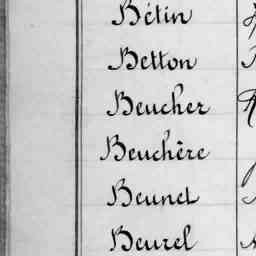 Bétin
Betton
Beucher
Beuchère
Beunet
Beurel